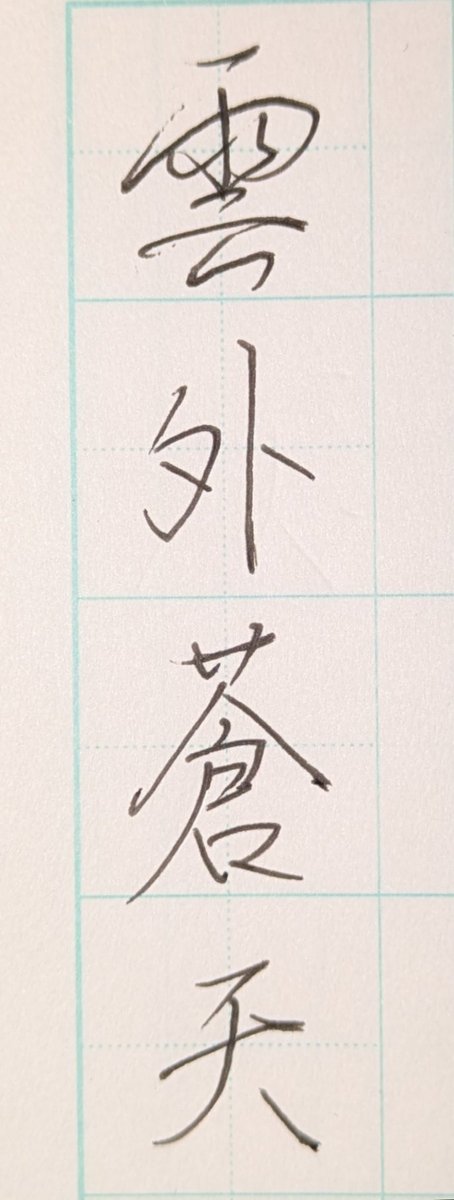 雲外蒼天